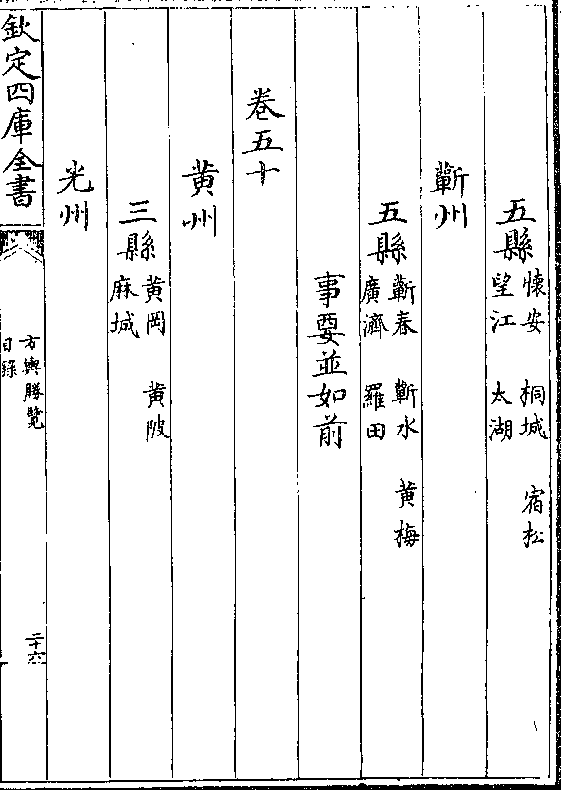 五縣 懷安 桐城 宿松
望江 太湖
蘄州
五縣 蘄春 蘄水 黄梅
廣濟 羅田
事要並如前
卷五十
黄州
三縣 黃岡 黄陂
麻城
光州
欽定四庫全書
方輿勝覽
目錄
二十六